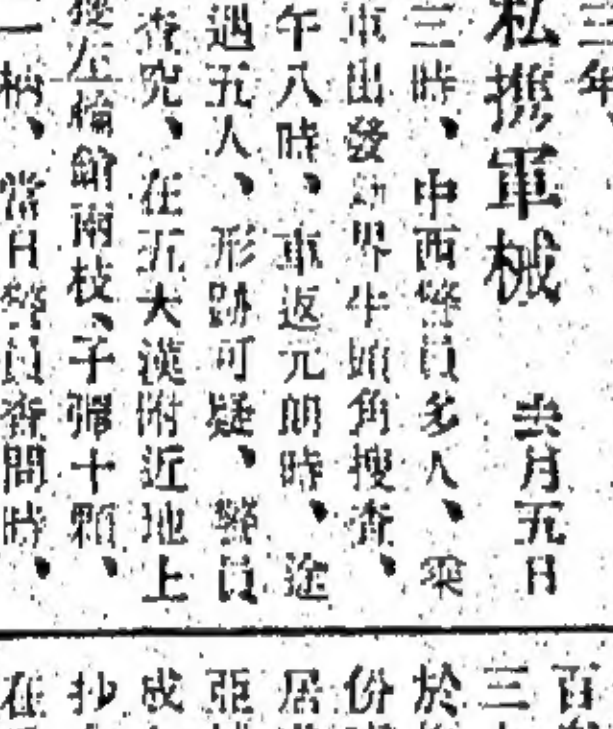 三年、
私携軍械　去月五日
三時、中西警員多人、乘
車出發新界牛頭角搜查、
午八時、車返元朗時、途
遇五人、形跡可疑、警員
查究、在五大漢附近地上
搜左輪鎗兩枝、子彈十顆、
一柄、當日警員查問時、
百
三
於
份
居
亞
成
抄
在